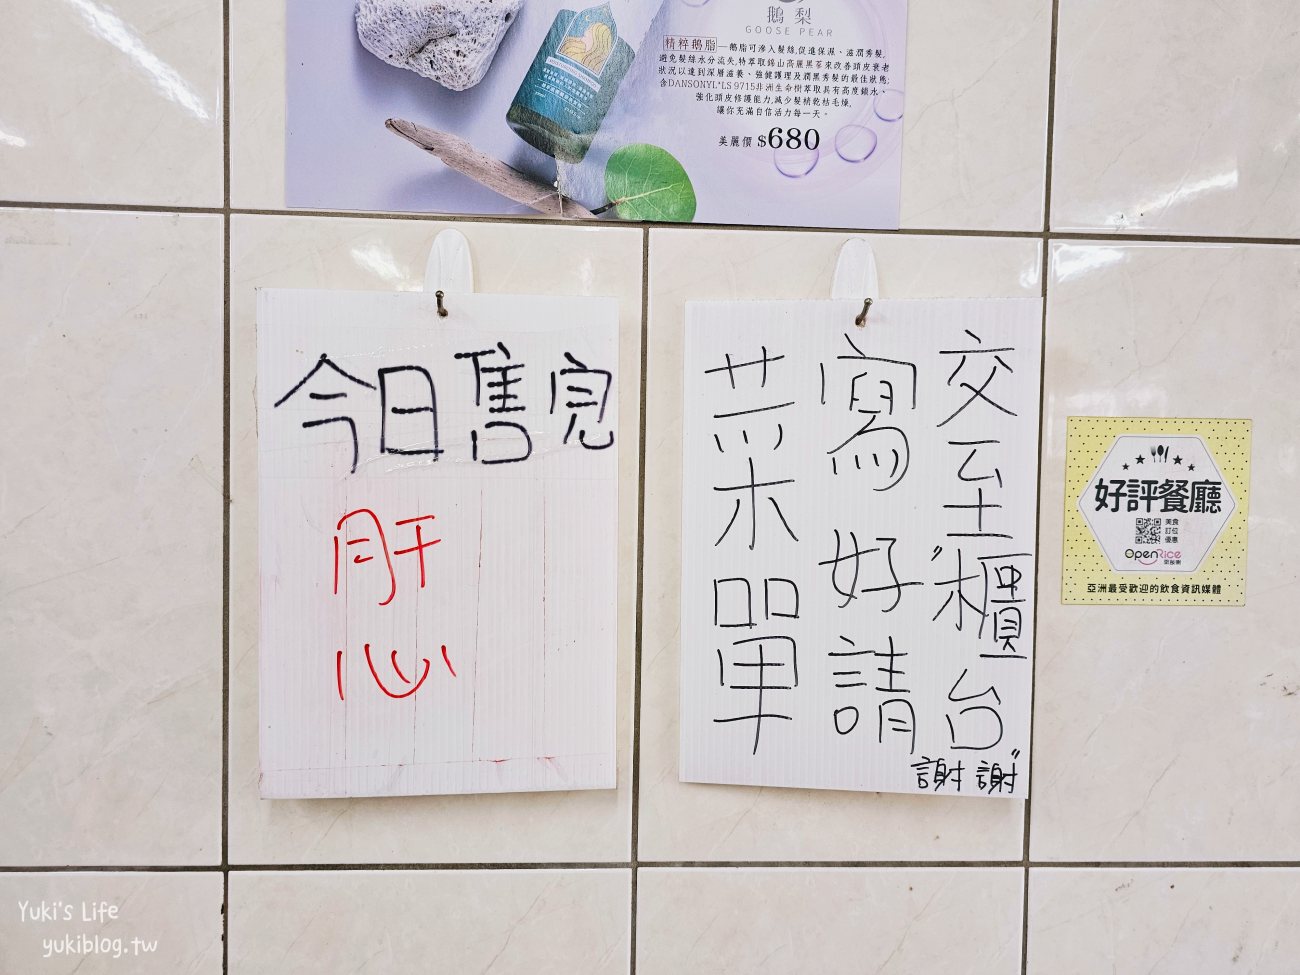 鵝 梨
GOOSE PEAR
精粹鵝脂—鵝脂可滲入髮絲,促進保濕、滋潤秀髮,
避免髮絲水分流失,特萃取錦山高麗黑蔘來改善頭皮衰老
狀況以達到深層滋養、強健護理及潤黑秀髮的最佳狀態;
含DANSONYL®LS 9715非洲生命樹萃取具有高度鎖水、
強化頭皮修護能力,減少髮梢乾枯毛燥,
讓你充滿自信活力每一天。
美麗價 $680
今日售完
肝
心
菜單
寫好請
交至"櫃台"
謝謝
好評餐廳
美食
訂位
優惠
OpenRice
亞洲最受歡迎的飲食資訊媒體
Yuki's Life
yukiblog.tw